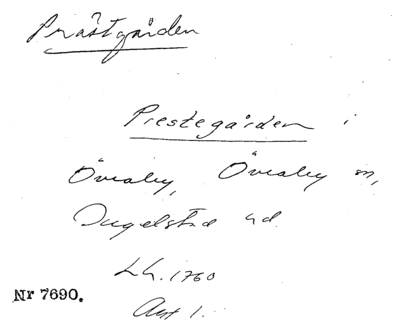 Prästgården
Prestegården i
Öraby, Öraby sn,
Ingelstad hd.
Lh. 1760
Nr 7690.
Avt 1.